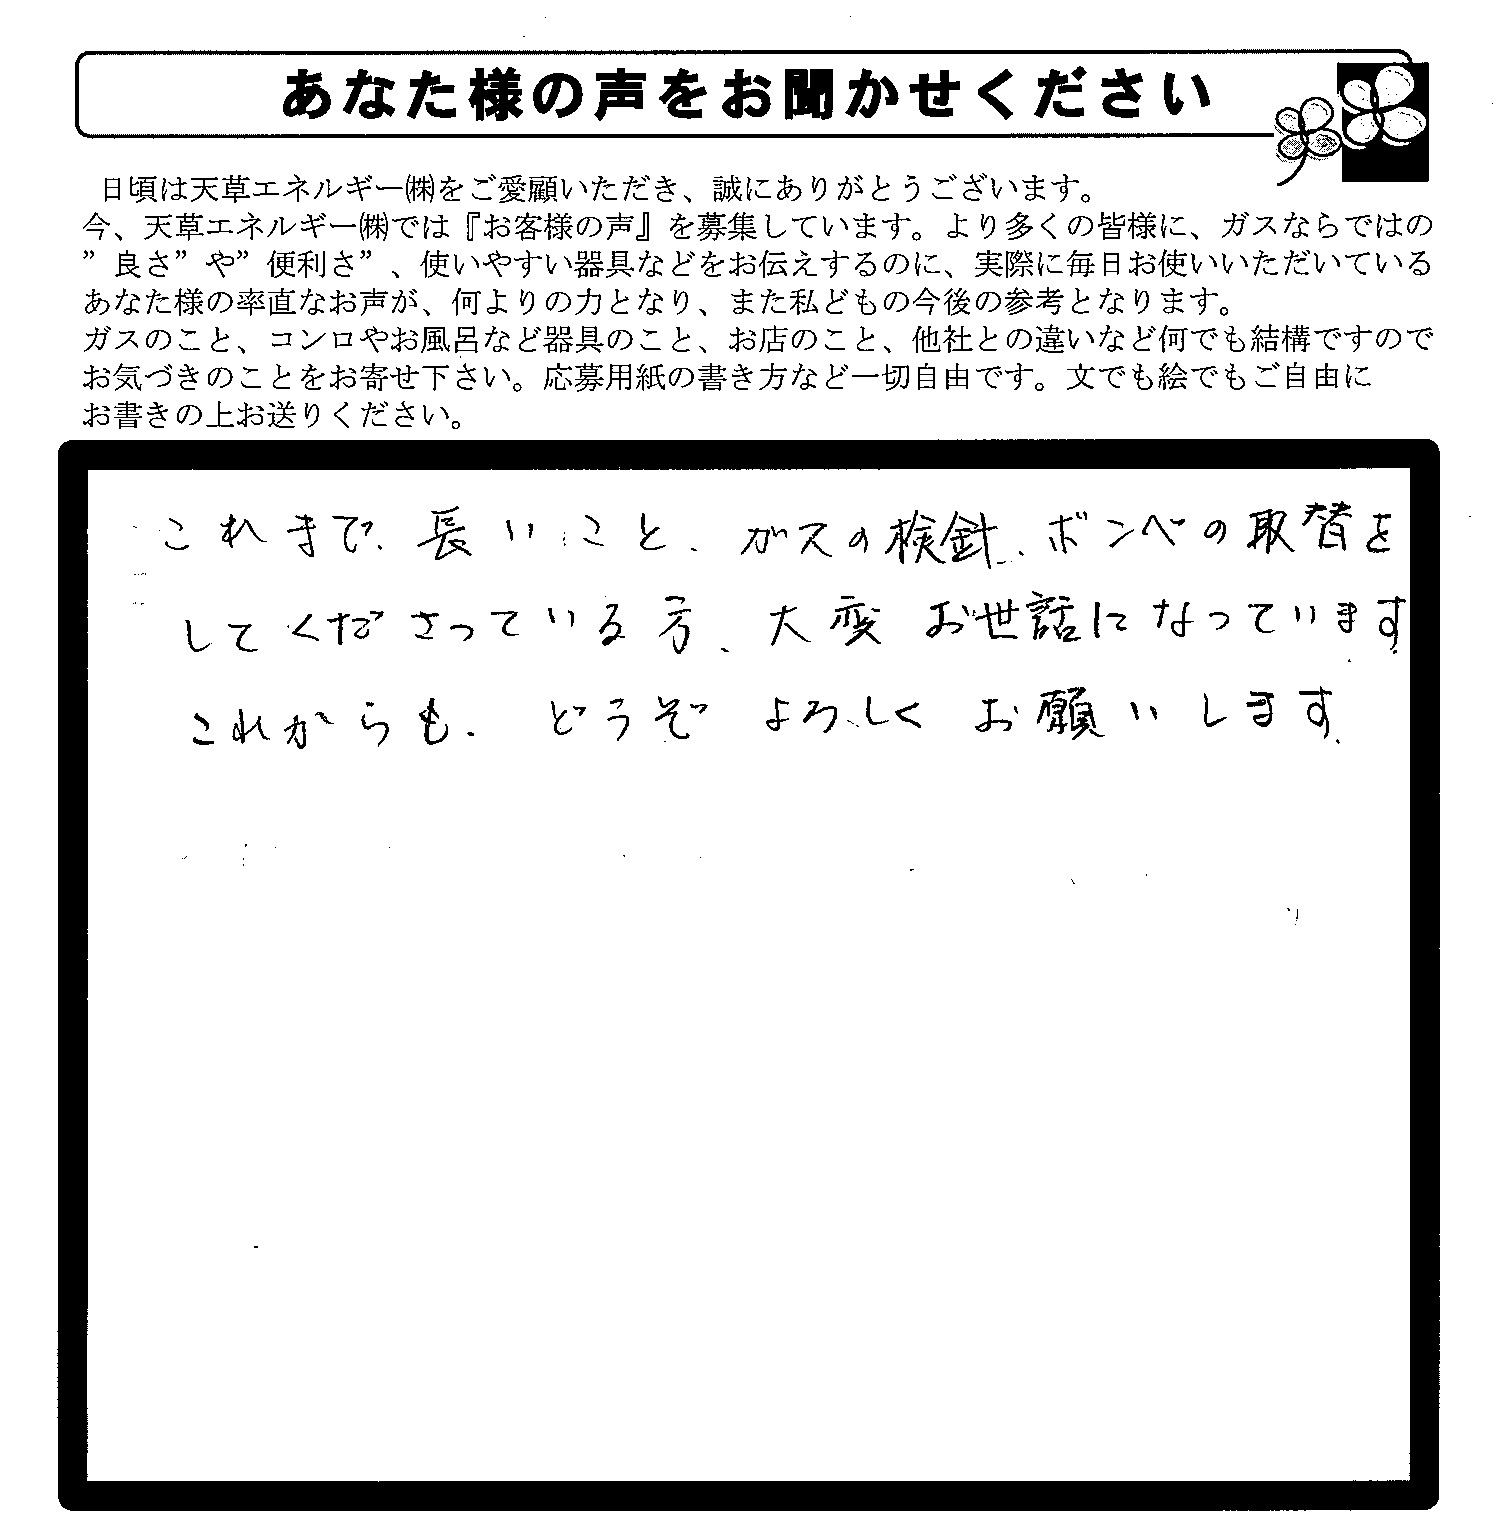 あなた様の声をお聞かせください
日頃は天草エネルギー㈱をご愛顧いただき、誠にありがとうございます。
今、天草エネルギー㈱では『お客様の声』を募集しています。より多くの皆様に、ガスならではの
”良さ”や”便利さ”、使いやすい器具などをお伝えするのに、実際に毎日お使いいただいている
あなた様の率直なお声が、何よりの力となり、また私どもの今後の参考となります。
ガスのこと、コンロやお風呂など器具のこと、お店のこと、他社との違いなど何でも結構ですので
お気づきのことをお寄せ下さい。応募用紙の書き方など一切自由です。文でも絵でもご自由に
お書きの上お送りください。
これまで、長いこと、ガスの検針、ボンベの取替を
してくださっている方、大変お世話になっています。
これからも、どうぞよろしくお願いします。